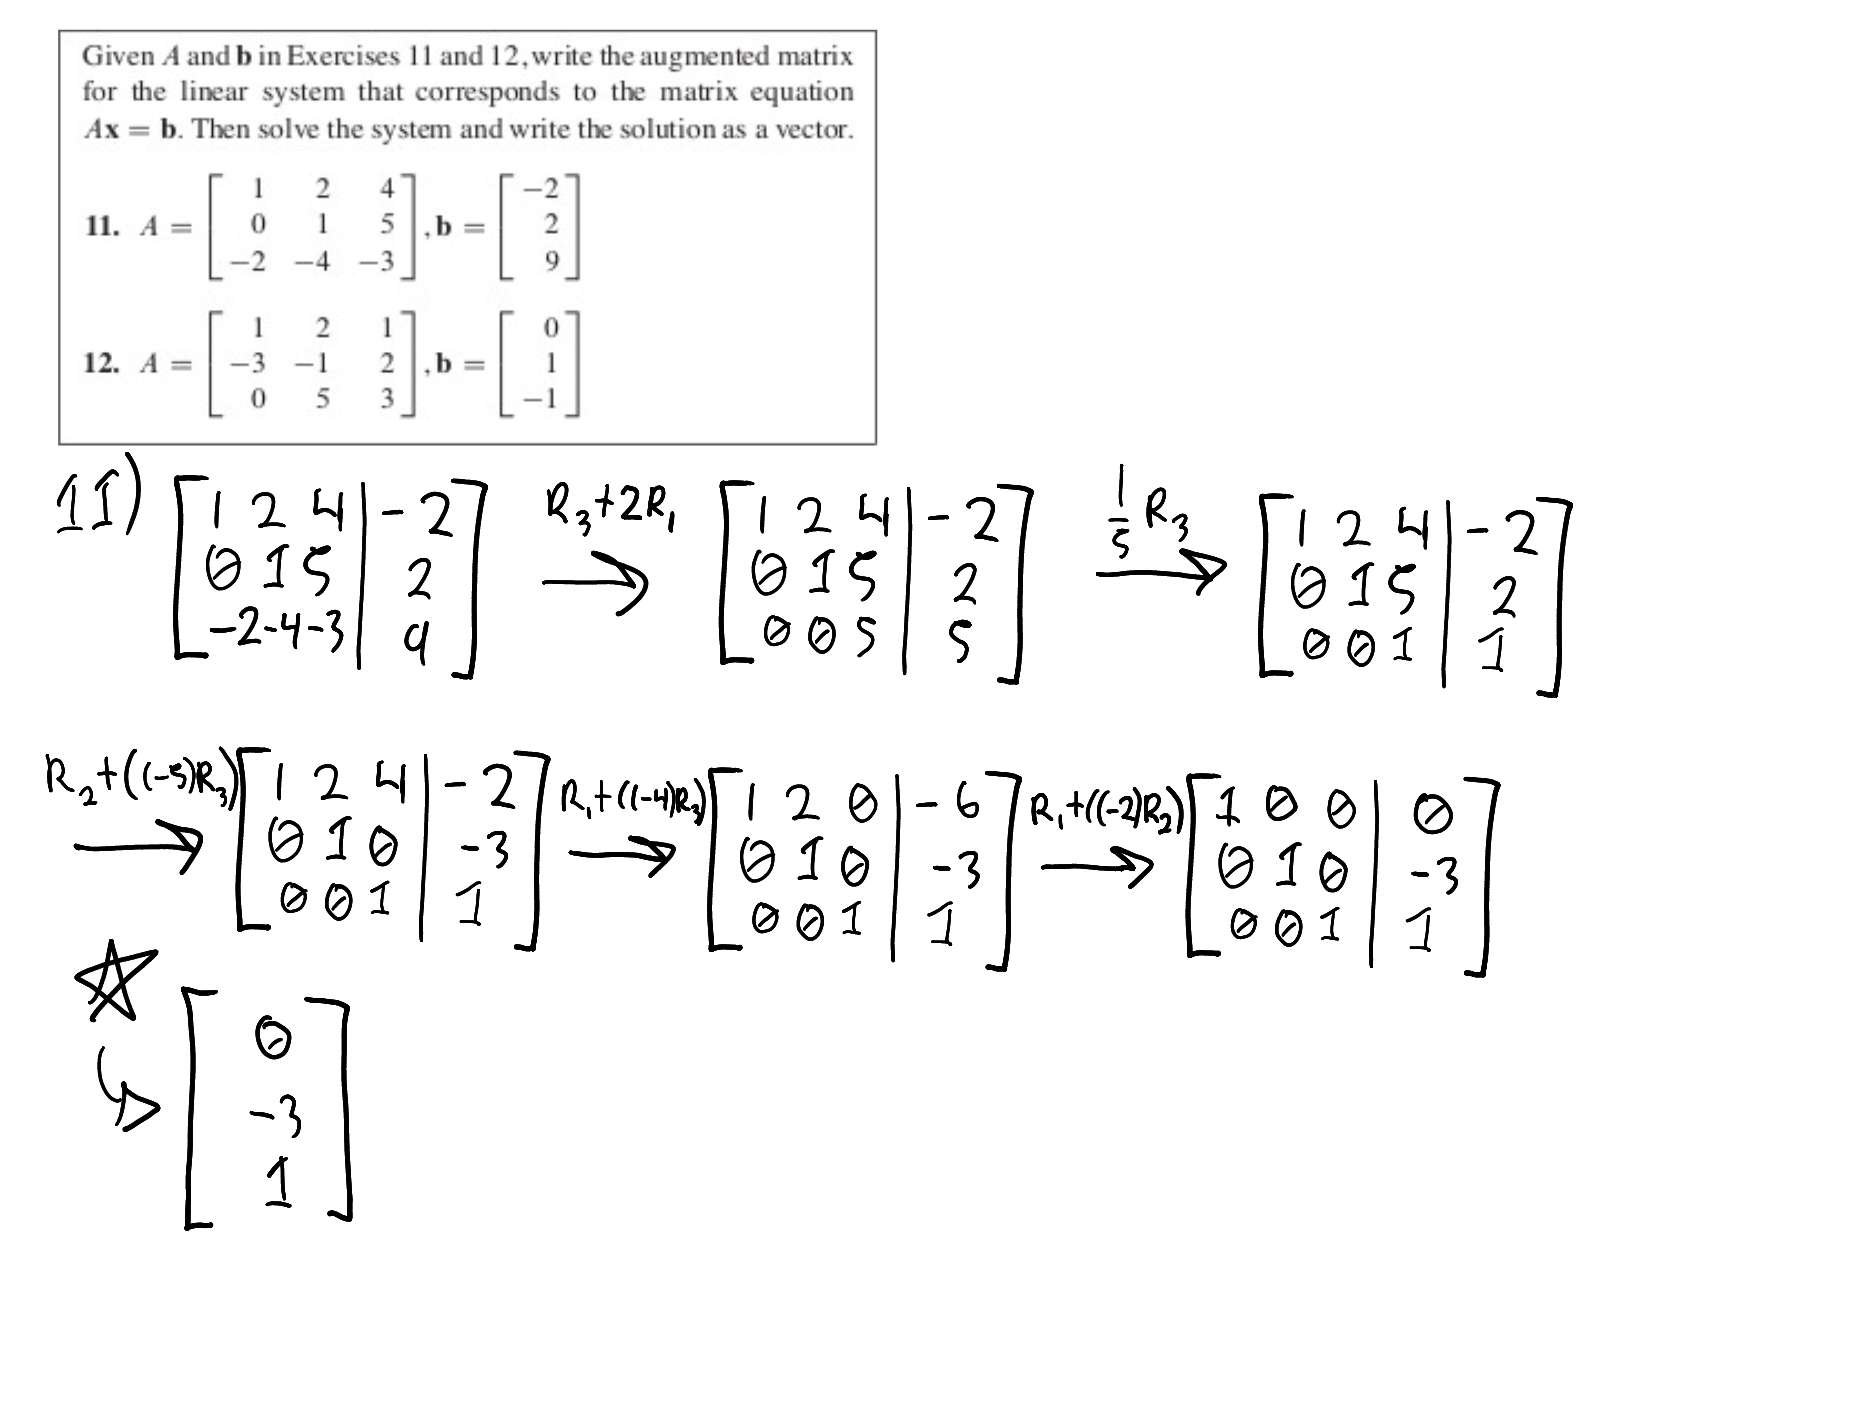 Given A and b in Exercises 11 and 12, write the augmented matrix
for the linear system that corresponds to the matrix equation
Ax = b. Then solve the system and write the solution as a vector.
11. A = [ 1 2 4 ; 0 1 5 ; −2 −4 −3 ], b = [ −2 ; 2 ; 9 ]
12. A = [ 1 2 1 ; −3 −1 2 ; 0 5 3 ], b = [ 0 ; 1 ; −1 ]
11) [ 1 2 4 | -2 ; 0 1 5 | 2 ; -2 -4 -3 | 9 ] R₃+2R₁ → [ 1 2 4 | -2 ; 0 1 5 | 2 ; 0 0 5 | 5 ] 1/5 R₃ → [ 1 2 4 | -2 ; 0 1 5 | 2 ; 0 0 1 | 1 ]
R₂+((-5)R₃) → [ 1 2 4 | -2 ; 0 1 0 | -3 ; 0 0 1 | 1 ] R₁+((-4)R₃) → [ 1 2 0 | -6 ; 0 1 0 | -3 ; 0 0 1 | 1 ] R₁+((-2)R₂) → [ 1 0 0 | 0 ; 0 1 0 | -3 ; 0 0 1 | 1 ]
[ 0 ; -3 ; 1 ]